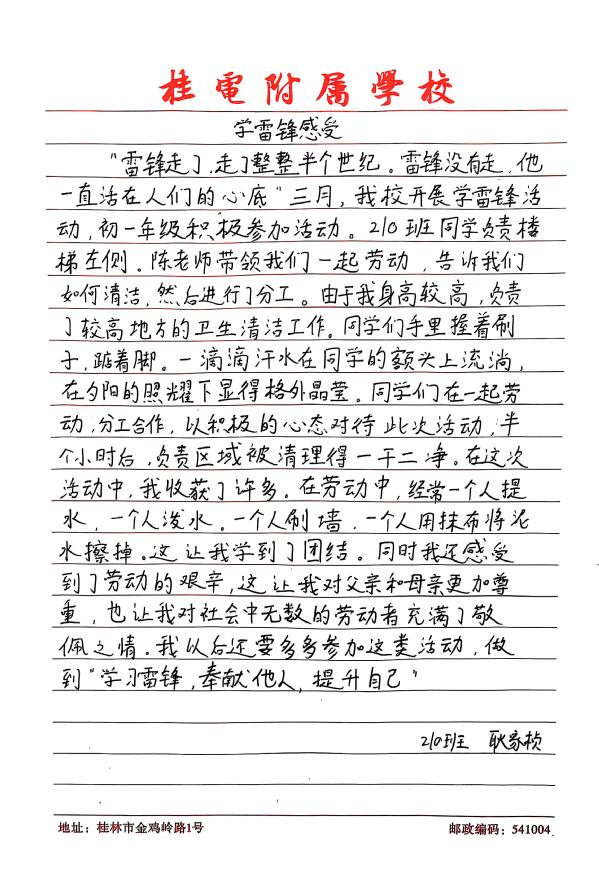 桂電附属學校
学雷锋感受
“雷锋走了,走了整整半个世纪。雷锋没有走,他
一直活在人们的心底”三月,我校开展学雷锋活
动,初一年级积极参加活动。210班同学负责楼
梯左侧。陈老师带领我们一起劳动,告诉我们
如何清洁,然后进行了分工。由于我身高较高,负责
了较高地方的卫生清洁工作。同学们手里握着刷
子,踮着脚。一滴滴汗水在同学的额头上流淌,
在夕阳的照耀下显得格外晶莹。同学们在一起劳
动,分工合作,以积极的心态对待此次活动,半
个小时后,负责区域被清理得一干二净。在这次
活动中,我收获了许多。在劳动中,经常一个人提
水,一个人泼水。一个人刷墙,一个人用抹布将泥
水擦掉。这让我学到了团结。同时我还感受
到了劳动的艰辛,这让我对父亲和母亲更加尊
重,也让我对社会中无数的劳动者充满了敬
佩之情。我以后还要多多参加这类活动,做
到“学习雷锋,奉献他人,提升自己”
210班 耿家桢
地址:桂林市金鸡岭路1号 邮政编码:541004